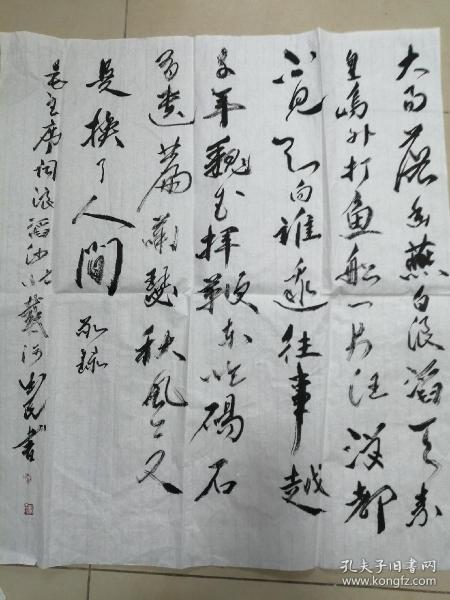 大雨落幽燕白浪滔天秦
皇岛外打鱼船一片汪洋都
不见知向谁边往事越
千年魏武挥鞭东临碣石
有遗篇萧瑟秋风今又
是换了人间
毛主席词浪淘沙北戴河 书
孔夫子旧书网
www.kongfz.com